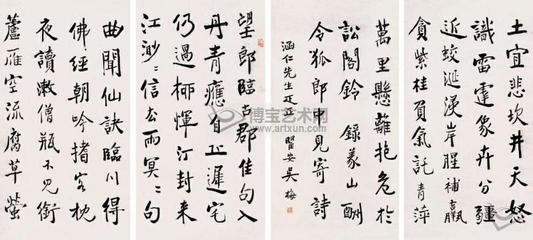 望郎臨古郡佳句入
丹青應自丘遲宅
仍過柳惲汀封來
江渺渺信去雨冥冥句
曲聞仙訣臨川得
佛經朝吟搘客枕
夜讀漱僧瓶不見銜
蘆雁空流腐草螢
土宜悲坎井天怒
識雷霆象卉分疆
近蛟涎浸岸腥補羸
貪紫桂負氣託青萍
萬里懸離抱危於
訟閤鈴 錄義山酬
令狐郎中見寄詩
涵仁先生疋正 瞿安吳梅
博宝艺术网
www.artxun.com